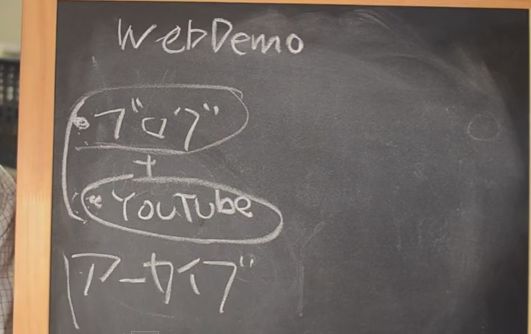 WebDemo
・ブログ
+
・YouTube
アーカイブ